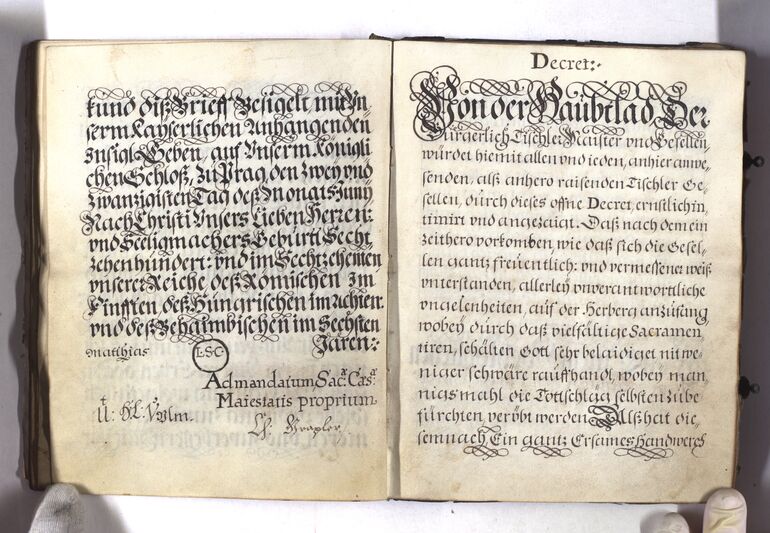 kund diß Brieff Besigelt mit Vn,
serm Kayserlichen Anhangenden
Innsigl Geben, auf Vnserm Königli
chen Schloß, zu Prag, den zwey vnd
zwanzigisten Tag deß Monats Juny
Nach Christi Vnsers Lieben Herren:
vnd Seeligmachers Geburt: Secht,
zehenhundert: vnd im Sechtzehenten
vnserer Reiche deß Römischen im
Finfften, deß Hungrischen im achten
vnd deß Behaimbischen im Sechsten
Jaren:
Matthias L.S.C.
Ad mandatum Sac: Cæs:
Maiestatis proprium
vt: H. L. V. Vlm.
Decret:
Von der Haubtlad Der
Burgerlich Tischler Maister vnd Gesellen
würdet hiemit allen vnd ieden, anhier anwe,
senden, alß anhero raisenden Tischler Ge,
sellen, durch dieses offne Decret, ernstlich in,
timirt vnd angezaigt. Daß nach dem ein
zeithero vorkomben, wie daß sich die Gesel,
len gantz freuentlich: vnd vermessener weiß
vnterstanden, allerley vnverantwortliche
vngelenheiten, auf der Herberg anzufang
wobey durch daß vielfältige Sacramen,
tiren, schälten Gott sehr belaidiget nit we,
niger schwäre rauffhandl, wobey man,
nigs mahl die Totschläg selbsten zube,
fürchten, verübt werden. Alß hat die,
semnach Ein gantz Ersames Handwerch